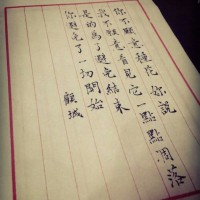 你不願意種花 你說
我不願意看見它一點點凋落
是的為了避免結束
你避免了一切開始
顧城